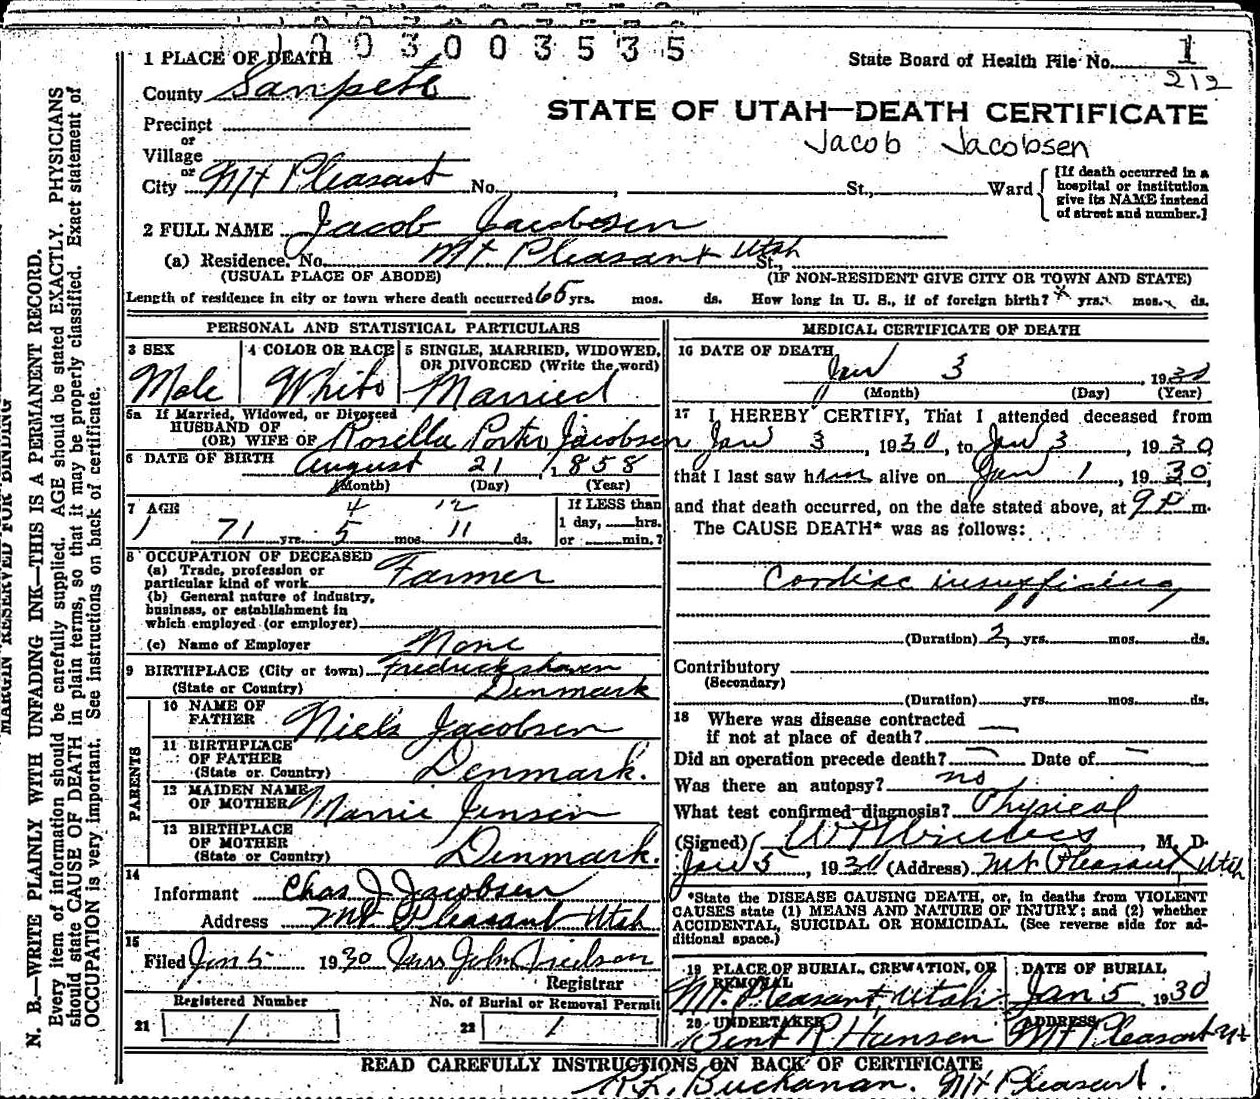 1003003535
1 PLACE OF DEATH
State Board of Health File No. 1
212
County Sanpete
STATE OF UTAH—DEATH CERTIFICATE
Precinct
Jacob Jacobsen
or
Village
or
City Mt Pleasant No. , St., Ward
[If death occurred in a hospital or institution give its NAME instead of street and number.]
2 FULL NAME Jacob Jacobsen
(a) Residence. No. Mt Pleasant Utah St.,
(USUAL PLACE OF ABODE) (IF NON-RESIDENT GIVE CITY OR TOWN AND STATE)
Length of residence in city or town where death occurred 65 yrs. mos. ds. How long in U. S., if of foreign birth? x yrs. x mos. x ds.
PERSONAL AND STATISTICAL PARTICULARS
3 SEX
Male
4 COLOR OR RACE
White
5 SINGLE, MARRIED, WIDOWED,
OR DIVORCED (Write the word)
Married
5a If Married, Widowed, or Divorced
HUSBAND OF
(OR) WIFE OF Rosella Porter Jacobsen
6 DATE OF BIRTH August 21, 1858
(Month) (Day) (Year)
7 AGE 4 12
1 71 yrs. 5 mos. 11 ds.
If LESS than
1 day, hrs.
or min.?
8 OCCUPATION OF DECEASED
(a) Trade, profession or
particular kind of work Farmer
(b) General nature of industry,
business, or establishment in
which employed (or employer)
(c) Name of Employer None
9 BIRTHPLACE (City or town) Fredrickshaven
(State or Country) Denmark
PARENTS
10 NAME OF
FATHER Niels Jacobsen
11 BIRTHPLACE
OF FATHER
(State or Country) Denmark.
12 MAIDEN NAME
OF MOTHER Marrie Jensen
13 BIRTHPLACE
OF MOTHER
(State or Country) Denmark.
14
Informant Chas J Jacobsen
Address Mt Pleasant Utah
15
Filed Jan 5 1930 John Neilson
Registrar
Registered Number
21 1
No. of Burial or Removal Permit
22 1
MEDICAL CERTIFICATE OF DEATH
16 DATE OF DEATH
Jan 3, 1930
(Month) (Day) (Year)
17 I HEREBY CERTIFY, That I attended deceased from
Jan 3, 1930, to Jan 3, 1930
that I last saw him alive on Jan 1, 1930,
and that death occurred, on the date stated above, at 9 P m.
The CAUSE DEATH* was as follows:
Cardiac
(Duration) yrs. mos. ds.
Contributory
(Secondary)
(Duration) yrs. mos. ds.
18 Where was disease contracted
if not at place of death? —
Did an operation precede death? — Date of —
Was there an autopsy? no
What test confirmed diagnosis? Physical
(Signed) , M. D.
Jan 5, 1930 (Address) Mt Pleasant, Utah
*State the DISEASE CAUSING DEATH, or, in deaths from VIOLENT
CAUSES state (1) MEANS AND NATURE OF INJURY; and (2) whether
ACCIDENTAL, SUICIDAL OR HOMICIDAL. (See reverse side for ad-
ditional space.)
19 PLACE OF BURIAL, CREMATION, OR
REMOVAL
Mt. Pleasant, Utah
DATE OF BURIAL
Jan 5 1930
20 UNDERTAKER
Bent R Hansen
ADDRESS
Mt Pleasant
READ CAREFULLY INSTRUCTIONS ON BACK OF CERTIFICATE
Buchanan. Mt Pleasant.
MARGIN RESERVED FOR BINDING
N. B.—WRITE PLAINLY WITH UNFADING INK—THIS IS A PERMANENT RECORD.
Every item of information should be carefully supplied. AGE should be stated EXACTLY. PHYSICIANS
should state CAUSE OF DEATH in plain terms, so that it may be properly classified. Exact statement of
OCCUPATION is very important. See instructions on back of certificate.